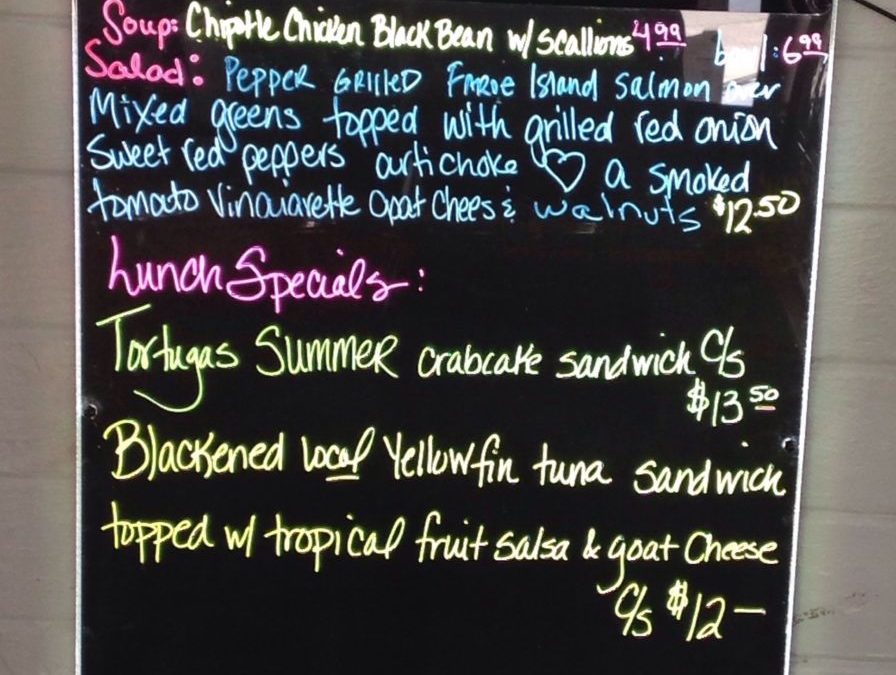 Soup: Chipotle Chicken Black Bean w/ scallions 4.99 bowl: 6.99
Salad: Pepper Grilled Faroe Island Salmon over
Mixed greens topped with grilled red onion
Sweet red peppers artichoke ♡ a smoked
tomato Vinaiarette Goat Chees & walnuts $12.50
Lunch Specials:
Tortugas SUMMER crabcake sandwich C/s
$13.50
Blackened local Yellowfin tuna sandwich
topped w/ tropical fruit salsa & goat Cheese
C/s $12—